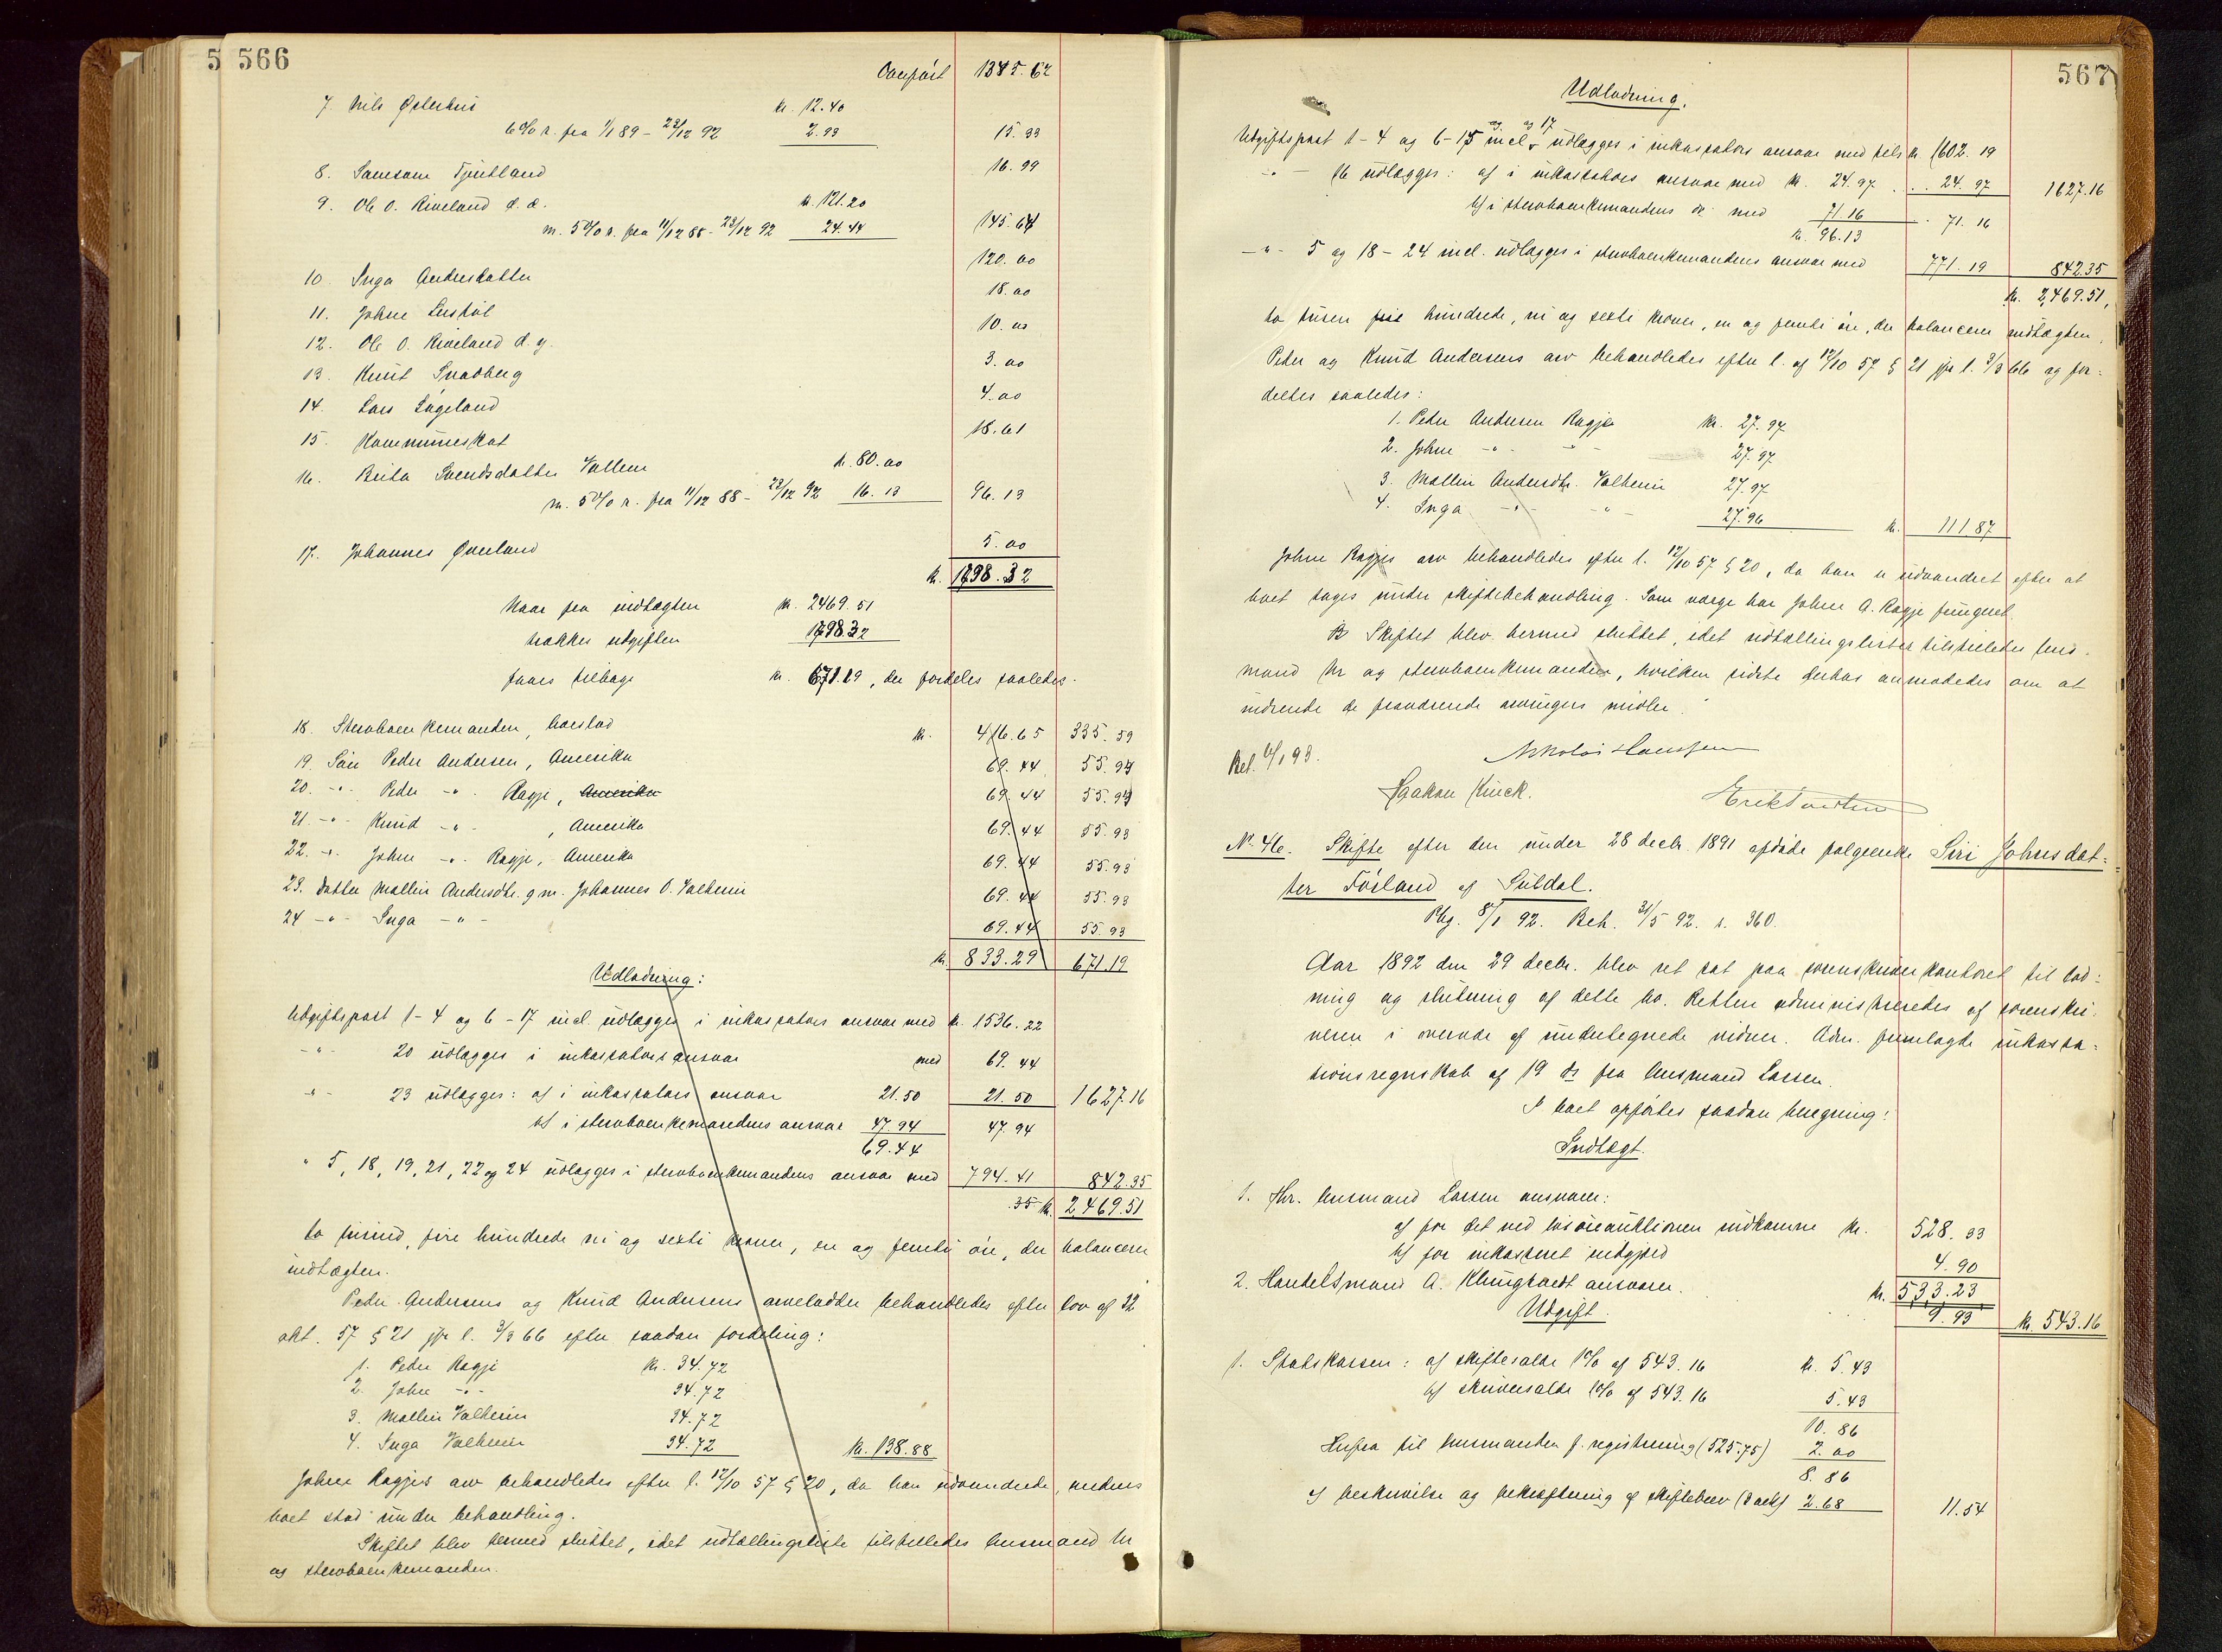 5 566
Overført 1345.62
7. Nils Østerhus kr. 12.40
6% r. fra 1/1 89 – 23/12 92 2.93 15.33
8. Samson Fjetland 16.99
9. Ole O. Kiveland d. æ. kr. 121.20
m. 5% r. fra 11/12 88 – 23/12 92 24.44 145.64
10. Inga Andersdatter 120.00
11. Johne 18.00
12. Ole O. Kiveland d. y. 10.00
13. Knut 3.00
14. Lars 4.00
15. Kommuneskat 18.61
16. Brita Svendsdatter Vallem kr. 80.00
m. 5% r. fra 11/12 88 – 23/12 92 16.13 96.13
17. Johannes Øverland 5.00
kr. 1798.32
Naar fra indtægten kr. 2469.51
trækkes udgiften 1798.32
faaes tilbage kr. 671.19, der fordeles saaledes:
18. Stervboenkemanden, boeslod kr. 416.65 335.59
19. Søn Peder Andersen, Amerika 69.44 55.94
20. -"- Peder -"- Ragje, Amerika 69.44 55.94
21. -"- Knud -"- , Amerika 69.44 55.93
22. -"- Johne -"- Ragje, Amerika 69.44 55.93
23. Datter Mallin Andersdtr. g.m. Johannes O. Valheim 69.44 55.93
24 -"- Inga -"- 69.44 55.93
kr. 833.29 671.19
Udlodning:
Udgiftspost 1–4 og 6–17 incl. udlægges i inkassators ansvar med kr. 1536.22
-"- 20 udlægges i inkassators ansvar med 69.44
-"- 23 udlægges: a) i inkassators ansvar 21.50 21.50 1627.16
b) i stervboenkemandens ansvar 47.94 47.94
69.44
" 5, 18, 19, 21, 22 og 24 udlægges i stervboenkemandens ansvar med 794.41 842.35
.35 kr. 2,469.51
to tusind, fire hundrede ni og sexti kroner, en og femti øre, der balancerer
indtægten.
Peder Andersens og Knud Andersens arvelodder behandledes efter lov af 12
okt. 57 § 21 jfr l. 3/3 66 efter saadan fordeling:
1. Peder Ragje kr. 34.72
2. Johne -"- 34.72
3. Mallin Valheim 34.72
4. Inga Valheim 34.72 kr. 138.88
Johne Ragjes arv behandledes efter l. 12/10 57 § 20, da han udvandrede, medens
boet stod under behandling.
Skiftet blev hermed sluttet, idet udtællingsliste tilstilledes lensmand Nr
og stervboenkemanden.
567
Udlodning.
og og 17
Udgiftspost 1–4 og 6–15 incl. udlægges i inkassators ansvar med tils kr. 1602.19
-"- 16 udlægges: a) i inkassators ansvar med kr. 24.97 . . . 24.97 1627.16
b) i stervboenkemandens do med 71.16 . 71.16
kr. 96.13
-"- 5 og 18–24 incl. udlægges i stervboenkemandens ansvar med 771.19 842.35
kr. 2,469.51,
to tusen fire hundrede, ni og sexti kroner, en og femti øre, der balancerer indtægten.
Peder og Knud Andersens arv behandledes efter l. af 12/10 57 § 21 jfr l. 3/3 66 og for-
deltes saaledes:
1. Peder Andersen Ragje kr. 27.97
2. Johne -"- -"- 27.97
3. Mallin Andersdtr. Valheim 27.97
4. Inga -"- -"- 27.96 kr. 111.87
Johne Ragjes arv behandledes efter l. 12/10 57 § 20, da han er udvandret efter at
boet toges under skiftebehandling. Som værge har Johne A. Ragje fungeret.
Skiftet blev hermed sluttet, idet udtællingslister tilstilledes lens-
mand Nr og stervboenkemanden, hvilken sidste derhos anmodedes om at
indsende de fraværende arvingers midler.
Nikolai Hanssen
Haakon Kinck.
No. 46. Skifte efter den under 28 decbr. 1891 afdøde Siri Johnsdat-
ter Førland af Suldal.
Rbg. 8/1 92. Beh. 31/5 92. s. 360.
Aar 1892 den 29 decbr. blev ret sat paa sorenskriverkontoret til lod-
ning og slutning af dette bo. Retten administreredes af sorenskri-
veren i overvær af undertegnede vidner. Adm. fremlagde inkassa-
tionsregnskab af 19 ds fra lensmand Larsen.
I boet opførtes saadan beregning:
Indtægt.
1. Hr. lensmand Larsen ansvarer:
a) for det ved løsøreauktionen indkomne kr. 528.33
b) for inkasseret indgjæld 4.90
kr. 533.23
2. Handelsmand A. Klinghardt ansvarer. 9.93 kr. 543.16
Udgift.
1. Statskassen: a) skiftesalær 1% af 543.16 kr. 5.43
b) skriversalær 1% af 543.16 5.43
10.86
Herfra til lensmanden f. registrering (525.75) 2.00
8.86
c) beskrivelse og bekræftning af skiftebrev (2 ark) 2.68 11.54